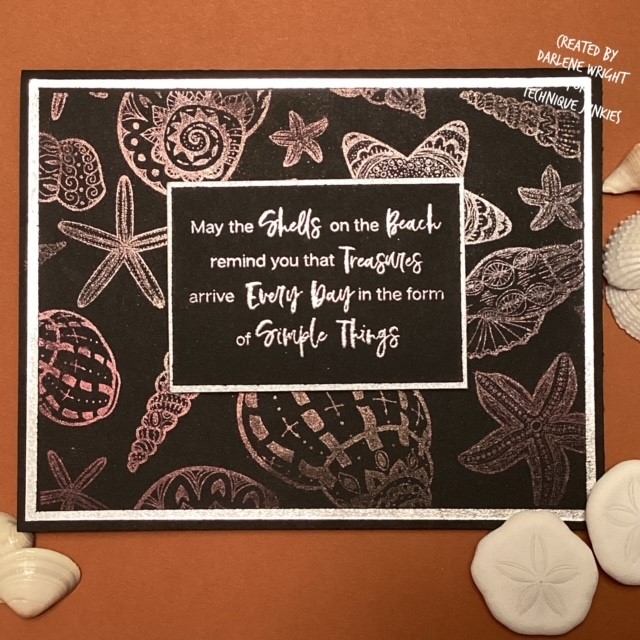 CREATED BY
DARLENE WRIGHT
FOR
TECHNIQUE JUNKIES
May the Shells on the Beach
remind you that Treasures
arrive Every Day in the form
of Simple Things